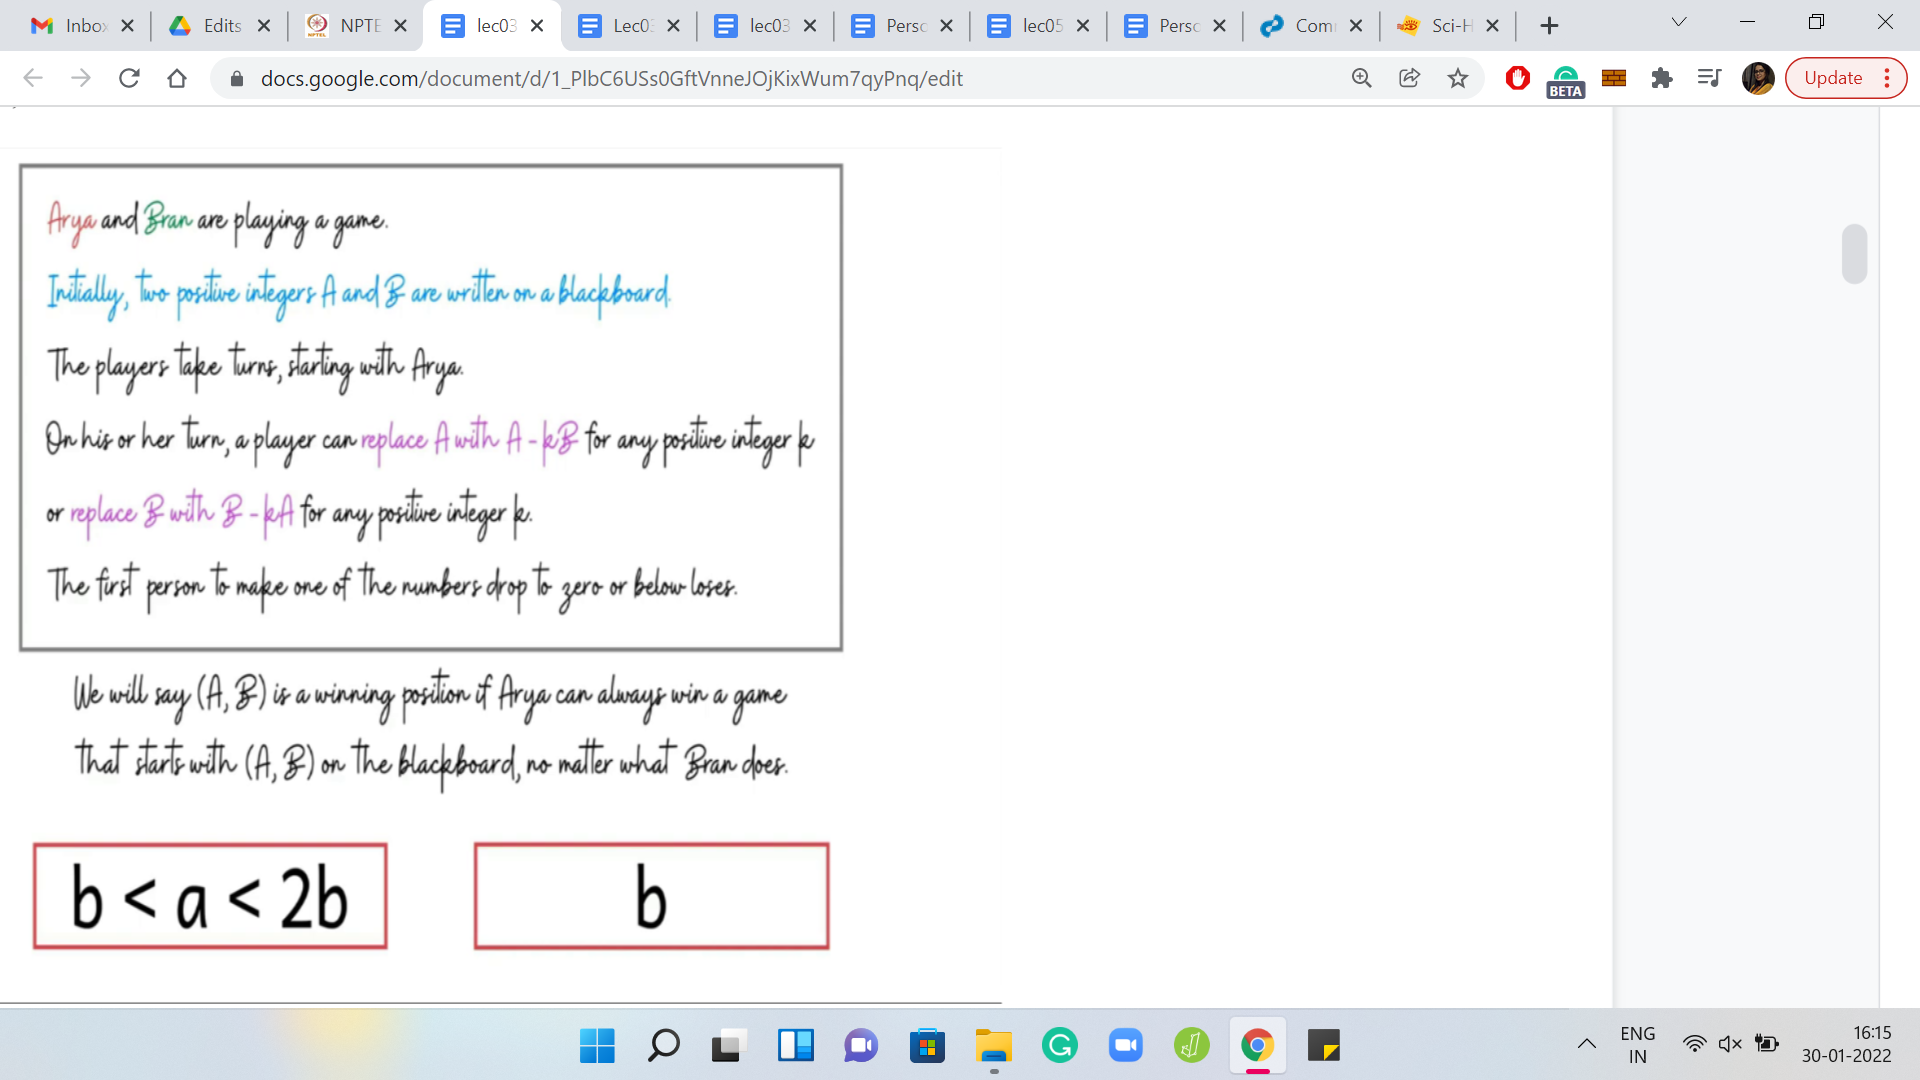 Inbox
Edits
NPTE
lec03
Lec03
lec03
Perso
lec05
Perso
Com
Sci-H
docs.google.com/document/d/1_PlbC6USs0GftVnneJOjKixWum7qyPnq/edit
BETA
Update
Arya and Bran are playing a game.
Initially, two positive integers A and B are written on a blackboard.
The players take turns, starting with Arya.
On his or her turn, a player can replace A with A - kB for any positive integer k
or replace B with B - kA for any positive integer k.
The first person to make one of the numbers drop to zero or below loses.
We will say (A, B) is a winning position if Arya can always win a game
that starts with (A, B) on the blackboard, no matter what Bran does.
b < a < 2b
b
ENG
IN
16:15
30-01-2022